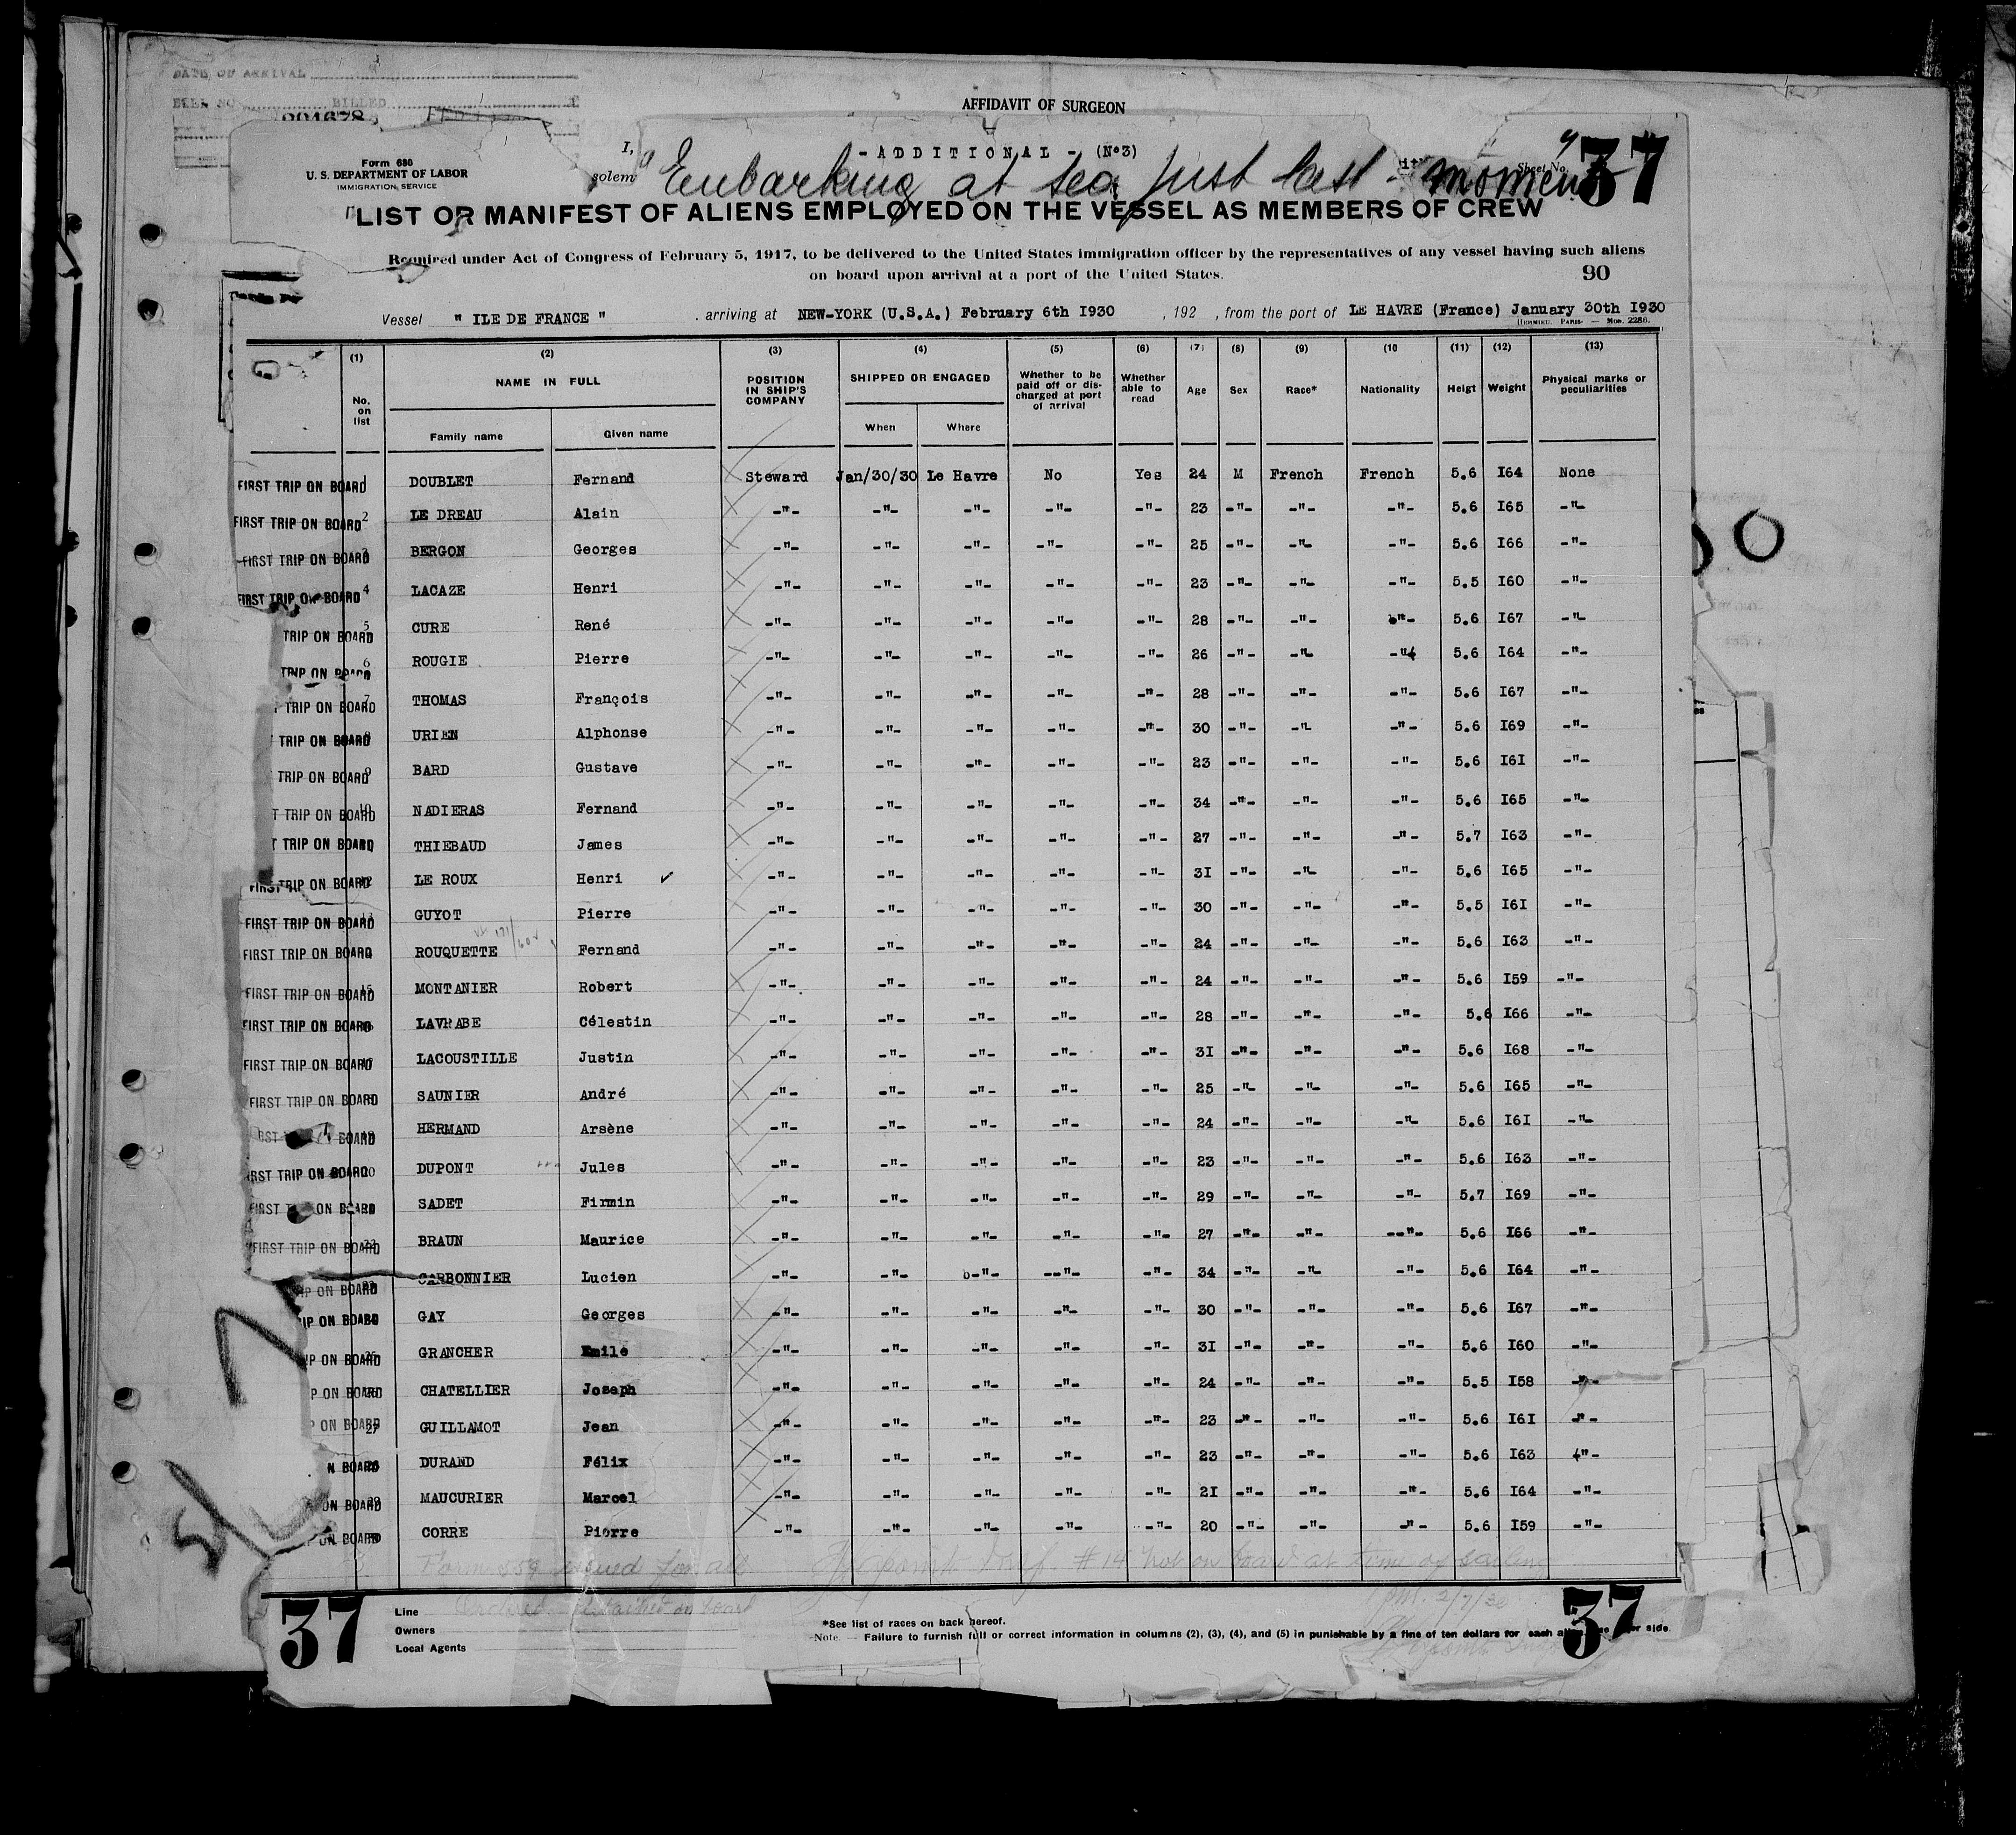 DATE OF ARRIVAL
BILLED
AFFIDAVIT OF SURGEON
Form 680
U. S. DEPARTMENT OF LABOR
IMMIGRATION SERVICE
I,
- ADDITIONAL - (No3)
solem
Embarking at sea just last moment
Sheet No.
37
LIST OR MANIFEST OF ALIENS EMPLOYED ON THE VESSEL AS MEMBERS OF CREW
Required under Act of Congress of February 5, 1917, to be delivered to the United States immigration officer by the representatives of any vessel having such aliens
on board upon arrival at a port of the United States.
90
Vessel " ILE DE FRANCE " , arriving at NEW-YORK (U.S.A.) February 6th I930 , 192 , from the port of LE HAVRE (France) January 30th I930
HERMIEU. PARIS — Mod. 2286.
(1) (2) (3) (4) (5) (6) (7) (8) (9) (10 (11) (12) (13)
No. on list NAME IN FULL Family name Given name POSITION IN SHIP'S COMPANY SHIPPED OR ENGAGED When Where Whether to be paid off or discharged at port of arrival Whether able to read Age Sex Race* Nationality Heigt Weight Physical marks or peculiarities
FIRST TRIP ON BOARD 1 DOUBLET Fernand Steward Jan/30/30 Le Havre No Yes 24 M French French 5.6 I64 None
FIRST TRIP ON BOARD 2 LE DREAU Alain -"- -"- -"- -"- -"- 23 -"- -"- -"- 5.6 I65 -"-
FIRST TRIP ON BOARD 3 BERGON Georges -"- -"- -"- -"- -"- 25 -"- -"- -"- 5.6 I66 -"-
FIRST TRIP ON BOARD 4 LACAZE Henri -"- -"- -"- -"- -"- 23 -"- -"- -"- 5.5 I60 -"-
TRIP ON BOARD 5 CURE René -"- -"- -"- -"- -"- 28 -"- -"- -"- 5.6 I67 -"-
TRIP ON BOARD 6 ROUGIE Pierre -"- -"- -"- -"- -"- 26 -"- -"- -"- 5.6 I64 -"-
TRIP ON BOARD 7 THOMAS François -"- -"- -"- -"- -"- 28 -"- -"- -"- 5.6 I67 -"-
TRIP ON BOARD 8 URIEN Alphonse -"- -"- -"- -"- -"- 30 -"- -"- -"- 5.6 I69 -"-
TRIP ON BOARD 9 BARD Gustave -"- -"- -"- -"- -"- 23 -"- -"- -"- 5.6 I6I -"-
T TRIP ON BOARD 10 NADIERAS Fernand -"- -"- -"- -"- -"- 34 -"- -"- -"- 5.6 I65 -"-
T TRIP ON BOARD THIEBAUD James -"- -"- -"- -"- -"- 27 -"- -"- -"- 5.7 I63 -"-
FIRST TRIP ON BOARD 12 LE ROUX Henri ✓ -"- -"- -"- -"- -"- 3I -"- -"- -"- 5.6 I65 -"-
FIRST TRIP ON BOARD GUYOT Pierre -"- -"- -"- -"- -"- 30 -"- -"- -"- 5.5 I6I -"-
FIRST TRIP ON BOARD ROUQUETTE Fernand -"- -"- -"- -"- -"- 24 -"- -"- -"- 5.6 I63 -"-
FIRST TRIP ON BOARD 15 MONTANIER Robert -"- -"- -"- -"- -"- 24 -"- -"- -"- 5.6 I59 -"-
FIRST TRIP ON BOARD LAVRABE Célestin -"- -"- -"- -"- -"- 28 -"- -"- -"- 5.6 I66 -"-
FIRST TRIP ON BOARD 17 LACOUSTILLE Justin -"- -"- -"- -"- -"- 3I -"- -"- -"- 5.6 I68 -"-
FIRST TRIP ON BOARD SAUNIER André -"- -"- -"- -"- -"- 25 -"- -"- -"- 5.6 I65 -"-
BOARD HERMAND Arsène -"- -"- -"- -"- -"- 24 -"- -"- -"- 5.6 I6I -"-
RST TRIP ON BOARD 20 DUPONT Jules -"- -"- -"- -"- -"- 23 -"- -"- -"- 5.6 I63 -"-
FIRST ON BOARD SADET Firmin -"- -"- -"- -"- -"- 29 -"- -"- -"- 5.7 I69 -"-
FIRST TRIP ON BOARD 22 BRAUN Maurice -"- -"- -"- -"- -"- 27 -"- -"- --"- 5.6 I66 -"-
IP ON BOARD 23 CARBONNIER Lucien -"- -"- -"- --"- -"- 34 -"- -"- -"- 5.6 I64 -"-
IP ON BOARD GAY Georges -"- -"- -"- -"- -"- 30 -"- -"- -"- 5.6 I67 -"-
IP ON BOARD 25 GRANCHER Emile -"- -"- -"- -"- -"- 3I -"- -"- -"- 5.6 I60 -"-
P ON BOARD CHATELLIER Joseph -"- -"- -"- -"- -"- 24 -"- -"- -"- 5.5 I58 -"-
P ON BOARD 27 GUILLAMOT Jean -"- -"- -"- -"- -"- 23 -"- -"- -"- 5.6 I6I -"-
N BOARD DURAND Félix -"- -"- -"- -"- -"- 23 -"- -"- -"- 5.6 I63 -"-
ON BOARD 29 MAUCURIER Marcel -"- -"- -"- -"- -"- 2I -"- -"- -"- 5.6 I64 -"-
ON BOARD CORRE Pierre -"- -"- -"- -"- -"- 20 -"- -"- -"- 5.6 I59 -"-
Form 559 issued for all
#14 not on board at time of sailing
37
Line
Owners
Local Agents
on board
*See list of races on back hereof.
Note. — Failure to furnish full or correct information in columns (2), (3), (4), and (5) in punishable by a fine of ten dollars for each side.
37